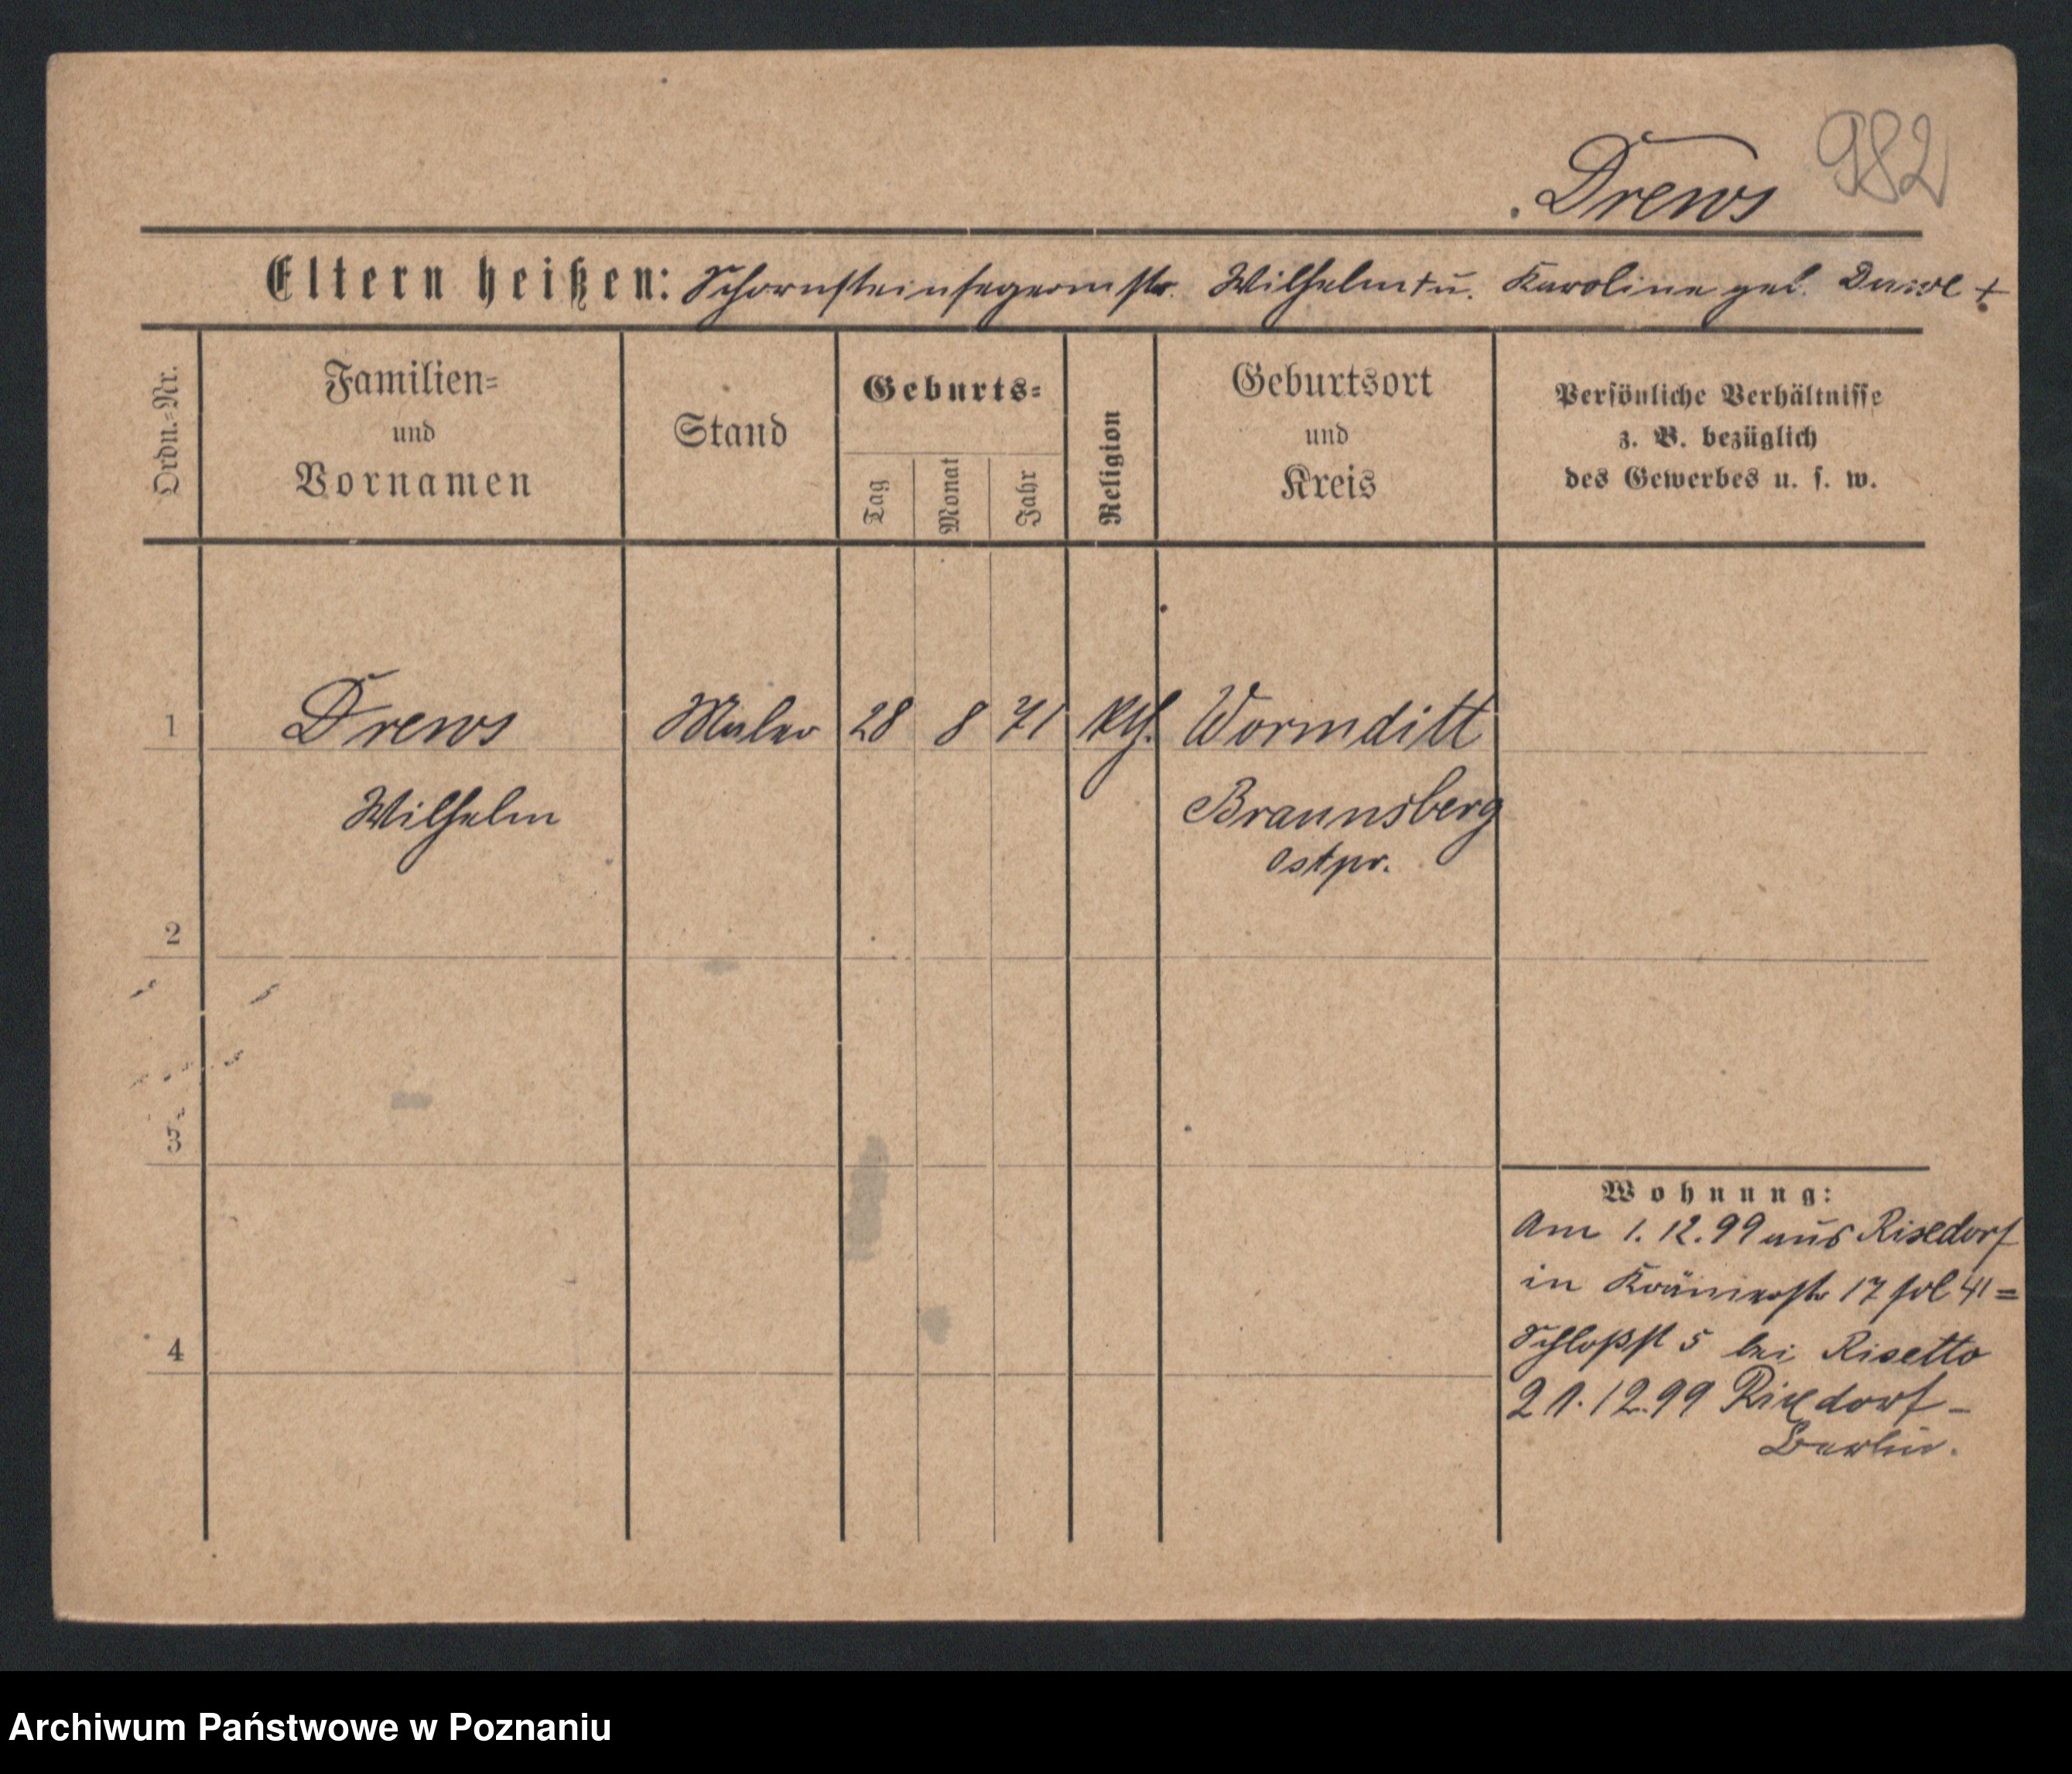 982
Drews
Eltern heißen: Schornsteinfegermstr. Wilhelm † u. Karoline geb. †
Ordn.=Nr.
Familien=
und
Vornamen
Stand
Geburts=
Tag
Monat
Jahr
Religion
Geburtsort
und
Kreis
Persönliche Verhältnisse
z. B. bezüglich
des Gewerbes u. s. w.
1 Drews Maler 28 8 71 kth. Wormditt
Wilhelm Braunsberg
Ostpr.
2
3
4
Wohnung:
Am 1.12.99 aus Rixdorf
in Krämerstr 17
Schloßst 5 bei Risetto
21.12.99 Rixdorf –
Berlin.
Archiwum Państwowe w Poznaniu